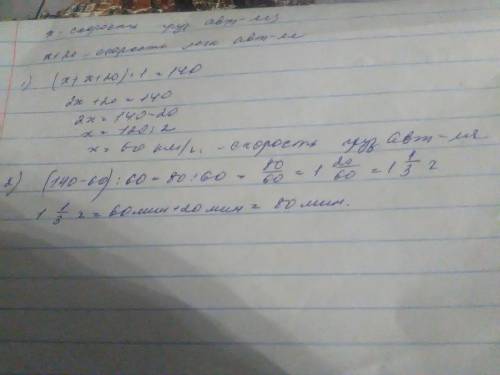 x - скорость груз авт-ля
x+20 - скорость легк авт-ля
1) (x+x+20)·1=140
2x+20=140
2x=140-20
x=120:2
x=60 км/ч. - скорость груз авт-ля
2) (140-60):60=80:60= 80/60 = 1 20/60 = 1 1/3 ч
1 1/3 ч = 60 мин + 20 мин = 80 мин.